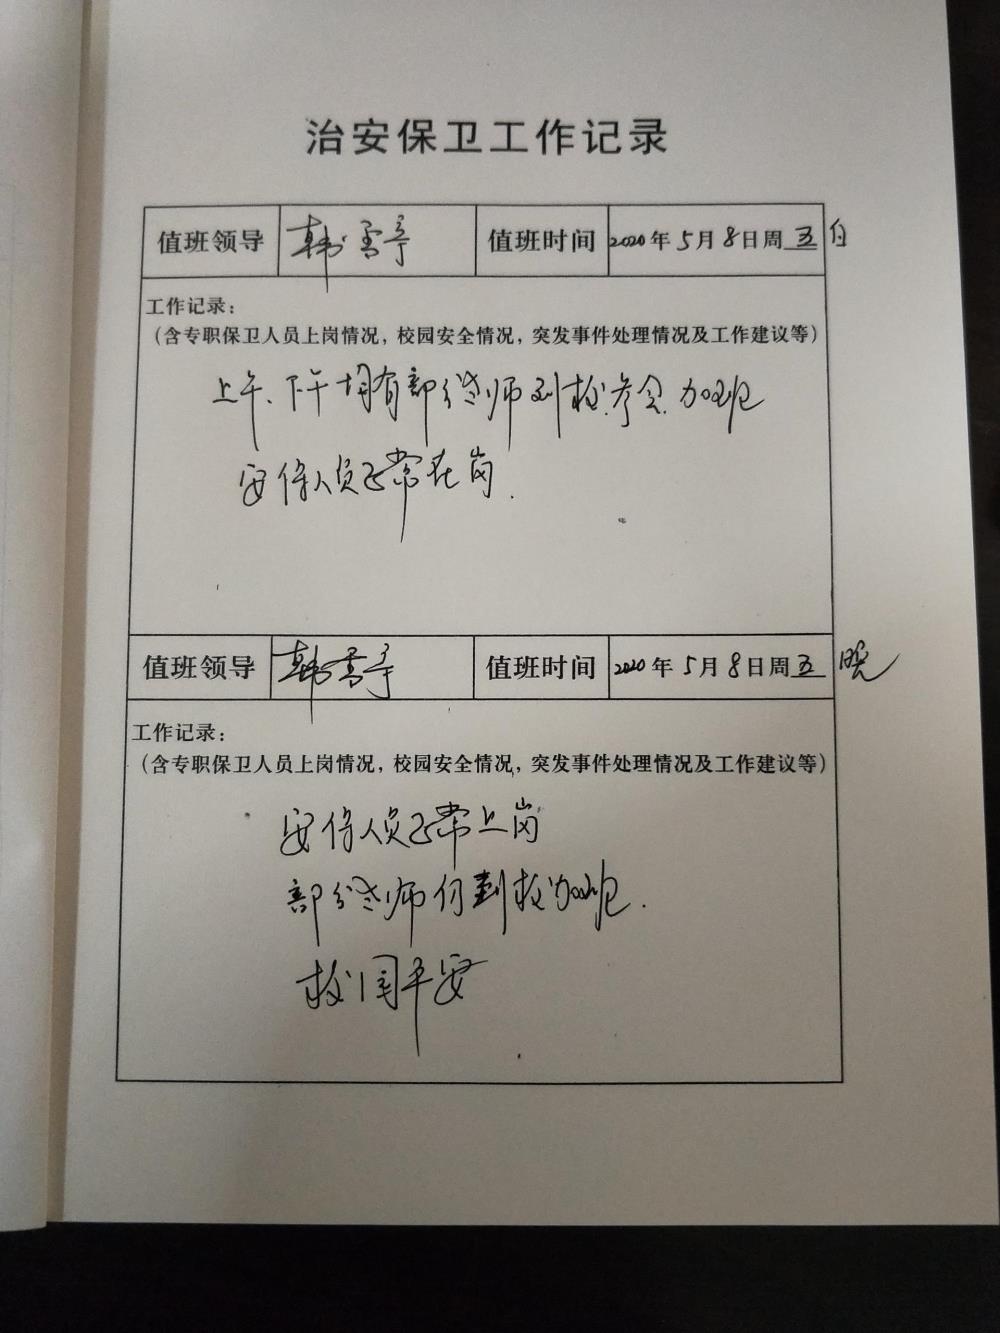 治安保卫工作记录
值班领导 韩雪亭 值班时间 2020年5月8日周五 白
工作记录：
（含专职保卫人员上岗情况，校园安全情况，突发事件处理情况及工作建议等）
上午、下午均有部分老师到校参会、加班
安保人员正常在岗.
值班领导 韩雪亭 值班时间 2020年5月8日周五 晚
工作记录：
（含专职保卫人员上岗情况，校园安全情况，突发事件处理情况及工作建议等）
安保人员正常上岗
部分老师仍到校加班.
校园平安